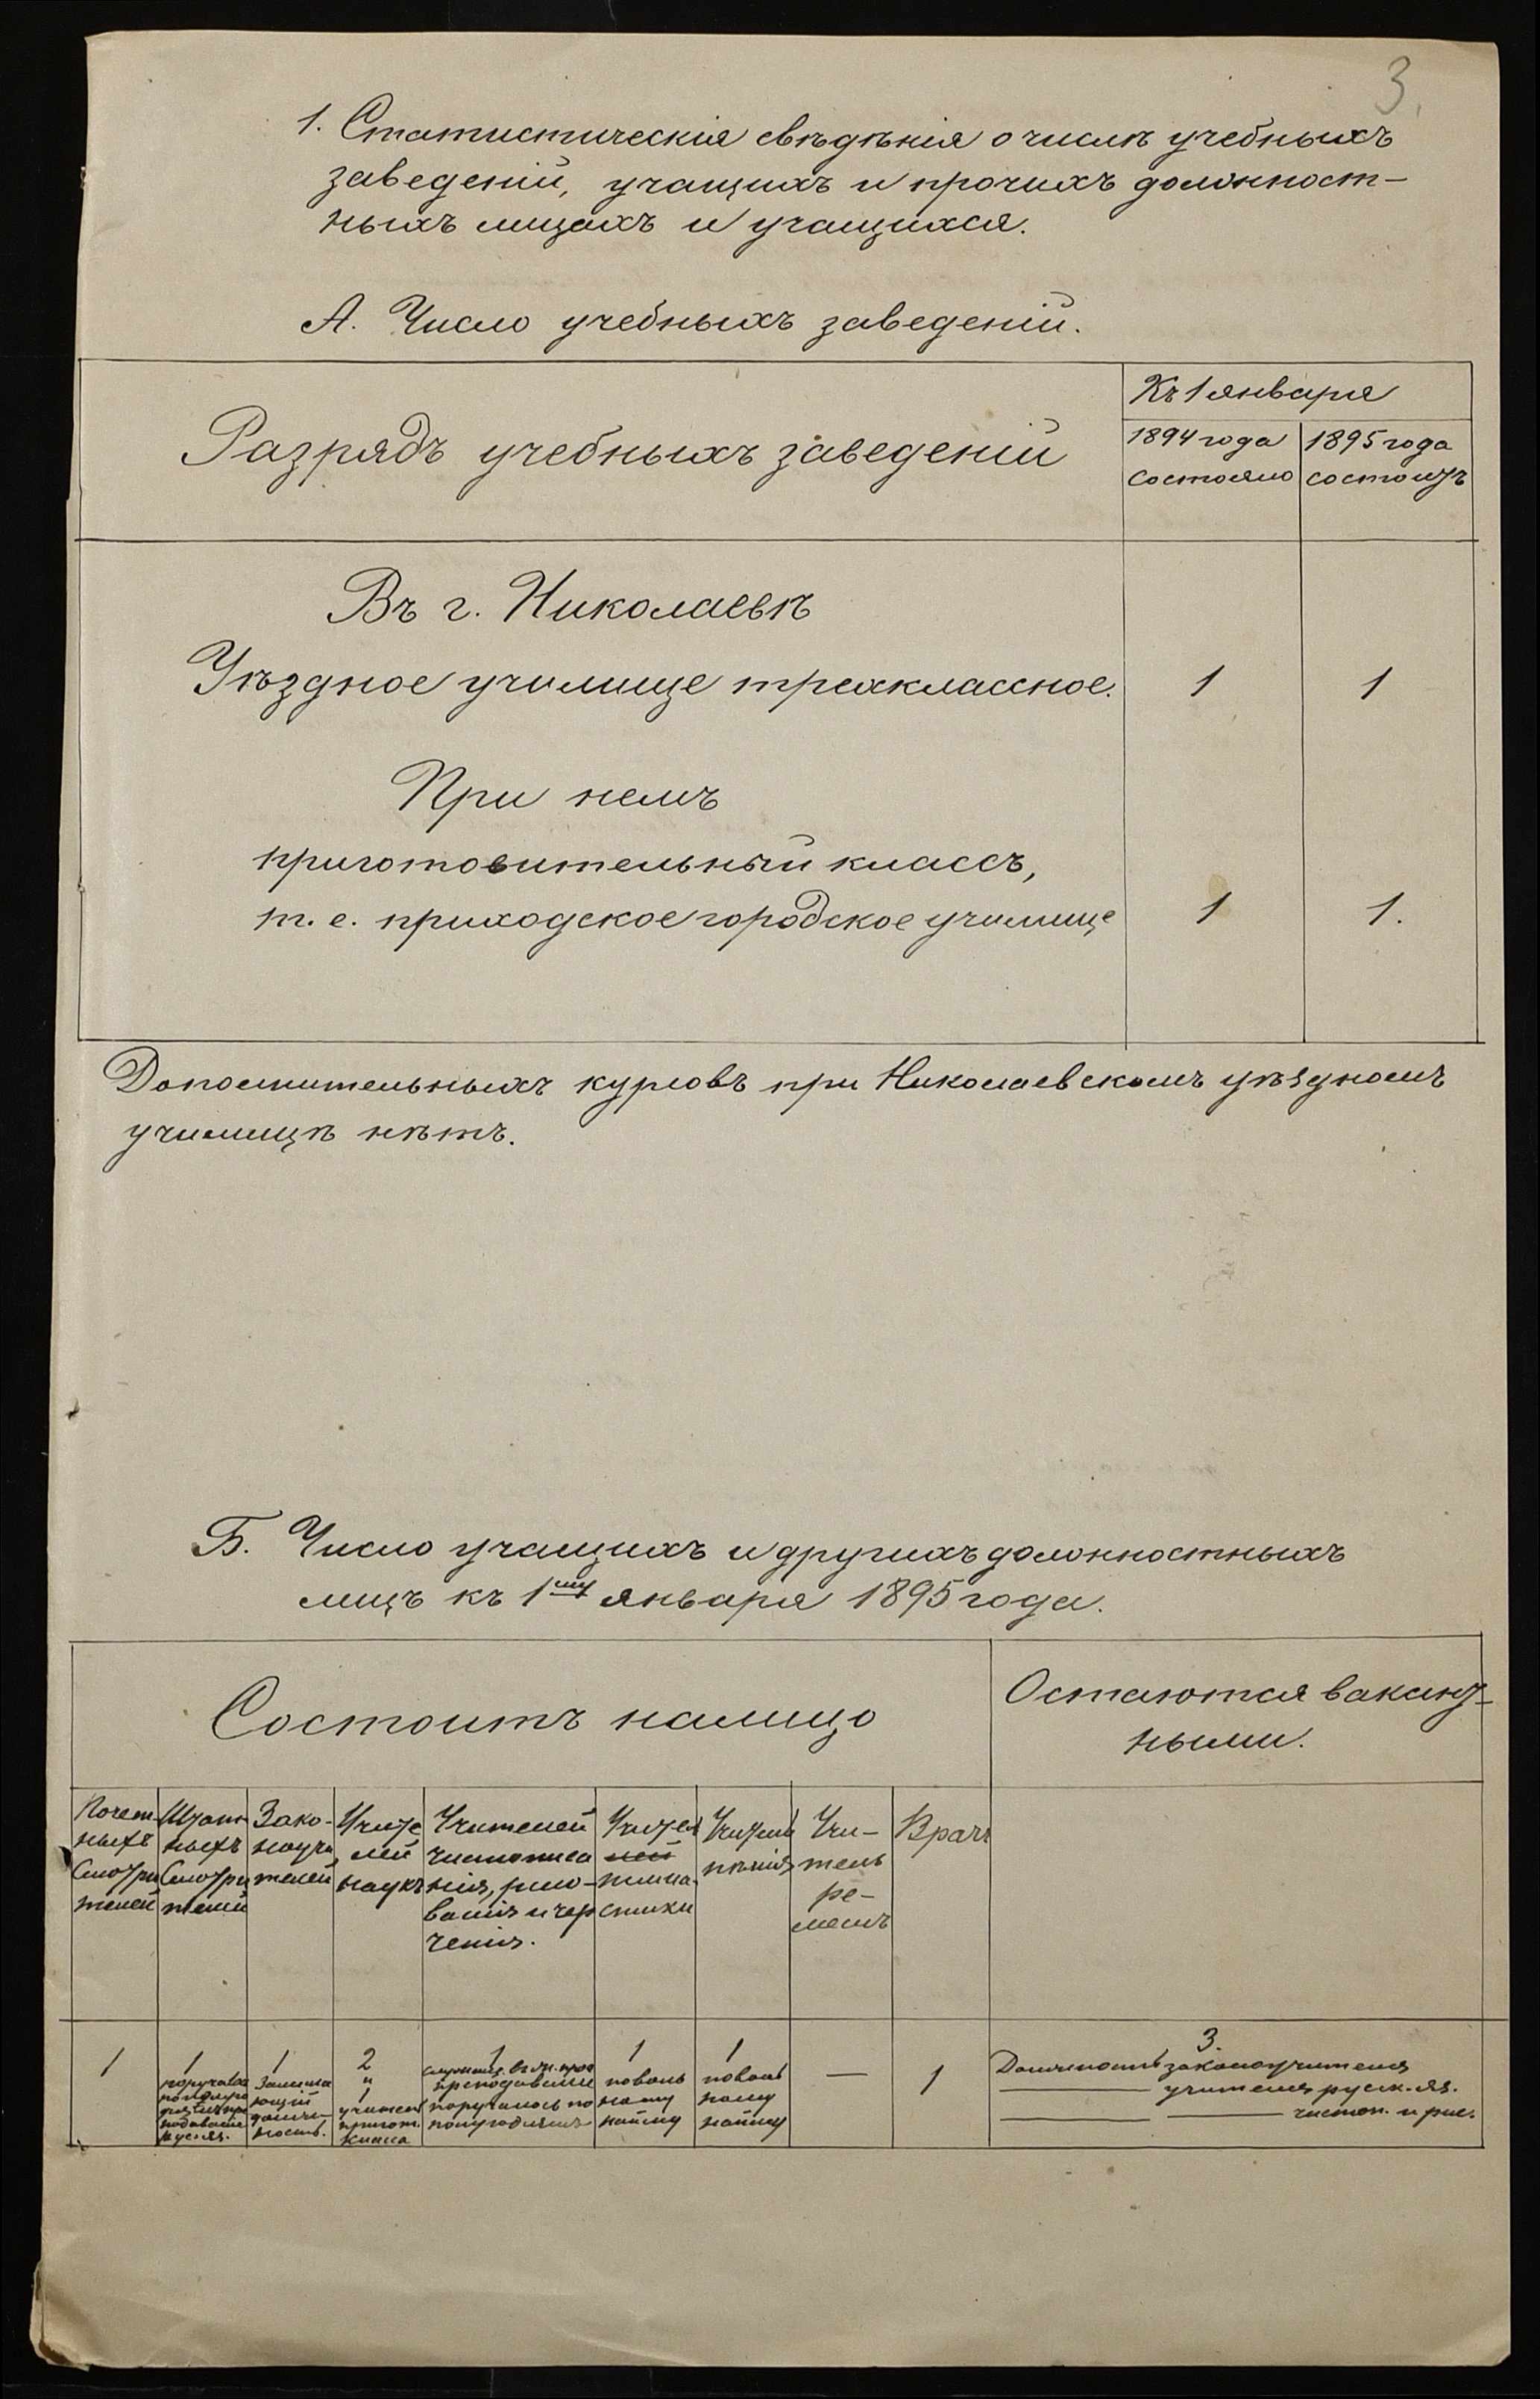 3.
1. Статистическія свѣдѣнія о числѣ учебныхъ
заведеній, учащихъ и прочихъ должност-
ныхъ лицахъ и учащихся.
А. Число учебныхъ заведеній.
Разрядъ учебныхъ заведеній
Къ 1 января
1894 года состояло
1895 года состоитъ
Въ г. Николаевѣ
Уѣздное училище трехклассное. 1 1
При немъ
приготовительный классъ,
т. е. приходское городское училище 1 1.
Дополнительныхъ курсовъ при Николаевскомъ уѣздномъ
училищѣ нѣтъ.
Б. Число учащихъ и другихъ должностныхъ
лицъ къ 1му января 1895 года.
Состоитъ налицо
Остаются вакант-
ными.
Почет-
ныхъ
Смотри
телей
Штат
ныхъ
Смотри
телей
Зако-
ноучи
телей
Учите
лей
наукъ
Учителей
чистописа
нія, рисо-
ванія и чер
ченія.
Учител
лей
гимна
стики
Учитель
пѣнія
Учи-
тель
ре-
меслъ
Врачъ
1
1
поручалось
преподаваніе
рус. яз.
1
Занима
ющій
должн
ность.
2
и
1
учитель
пригот.
класса
1
преподаваніе
поручалось по
полугодіямъ
1
по воль
ному
найму
1
по воль
ному
найму
—
1
3.
Должность законоучителя
—— учителя русск. яз.
—— —— чистоп. и рис.